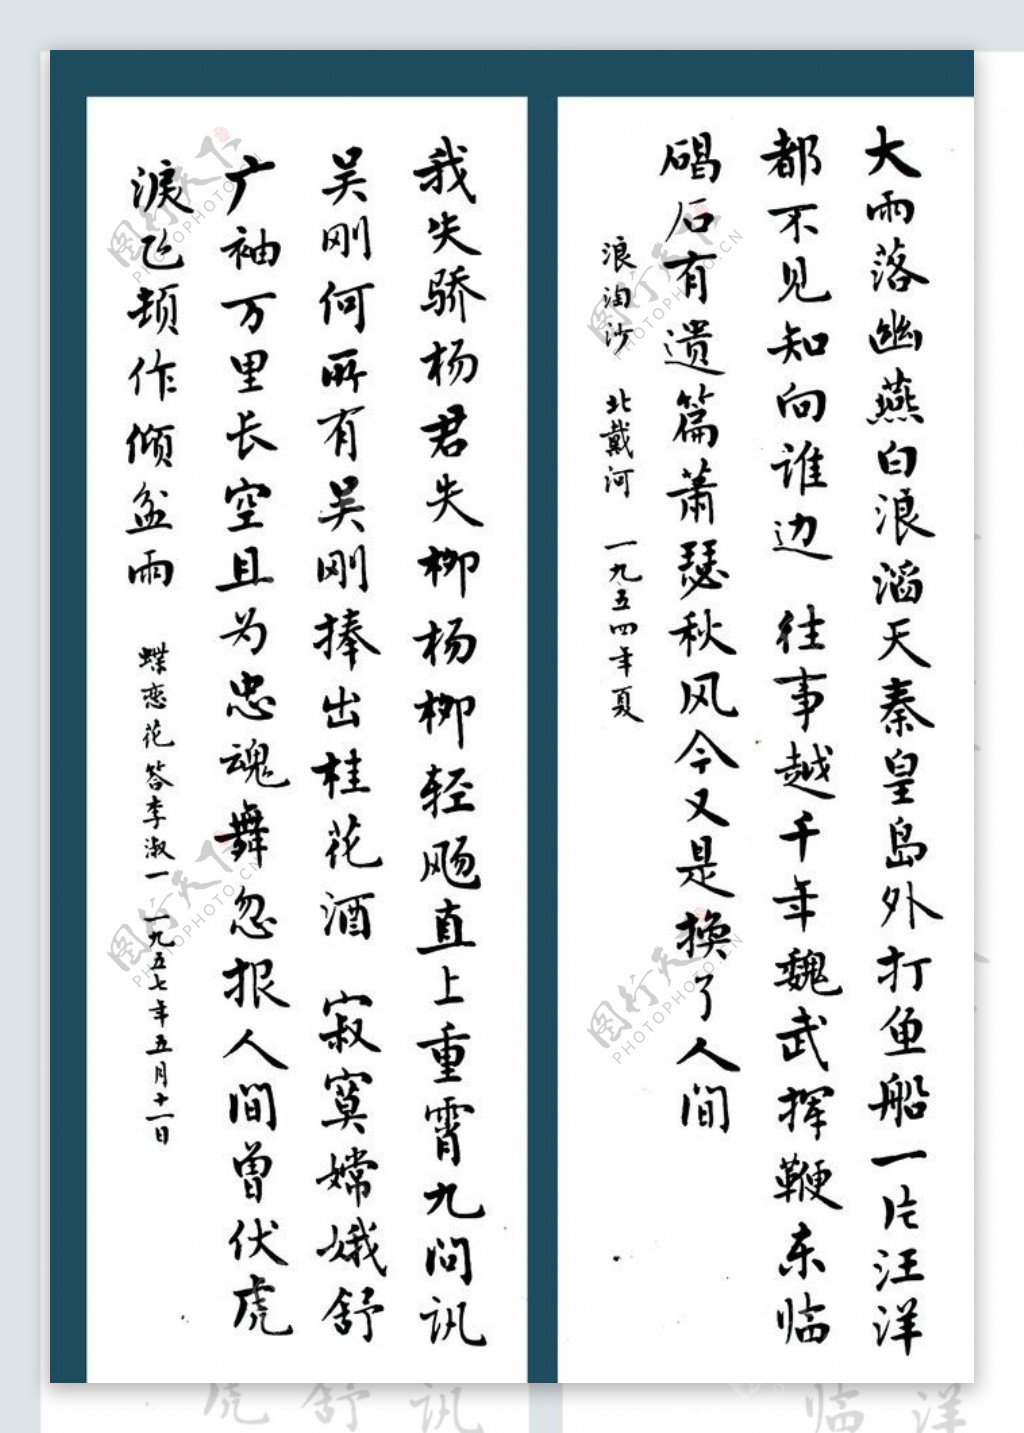 大雨落幽燕白浪滔天秦皇岛外打鱼船一片汪洋
都不见知向谁边 往事越千年魏武挥鞭东临
碣石有遗篇萧瑟秋风今又是换了人间
浪淘沙 北戴河 一九五四年夏
我失骄杨君失柳杨柳轻飏直上重霄九问讯
吴刚何所有吴刚捧出桂花酒 寂寞嫦娥舒
广袖万里长空且为忠魂舞忽报人间曾伏虎
淚飞顿作倾盆雨 蝶恋花答李淑一 一九五七年五月十一日
图行天下
PHOTOPHOTO.CN
图行天下
PHOTOPHOTO.CN
图行天下
PHOTOPHOTO.CN
图行天下
PHOTOPHOTO.CN
虎 舒 讯 临 洋